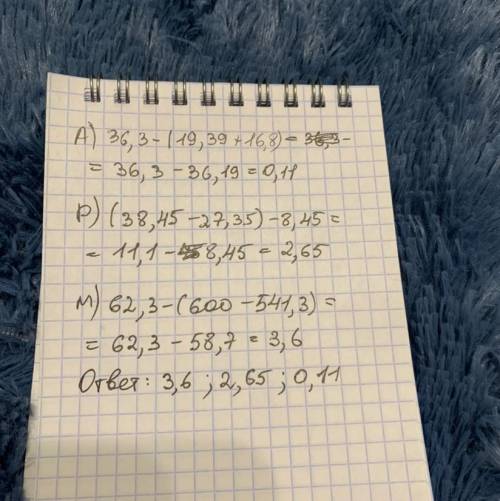 А) 36,3-(19,39+16,8)=
= 36,3-36,19=0,11
Р) (38,45-27,35)-8,45=
= 11,1-8,45=2,65
М) 62,3-(600-541,3)=
= 62,3-58,7=3,6
Ответ: 3,6; 2,65; 0,11